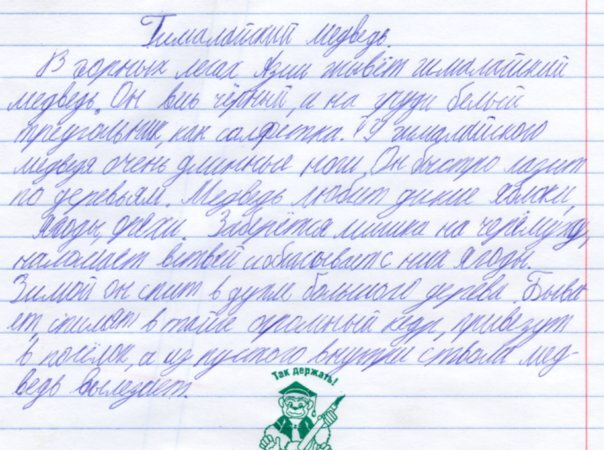 Гималайский медведь.
В горных лесах Азии живёт гималайский
медведь. Он весь чёрный, а на груди белый
треугольник, как салфетка. У гималайского
медведя очень длинные ноги. Он быстро лазит
по деревьям. Медведь любит дикие яблоки,
ягоды, орехи. Заберётся мишка на черёмуху,
наломает ветвей и обгрызывает с них ягоды.
Зимой он спит в дупле большого дерева. Быва-
ет, спилят в тайге огромный кедр, привезут
в посёлок, а из пустого внутри ствола мед-
ведь вылезает.
Так держать!